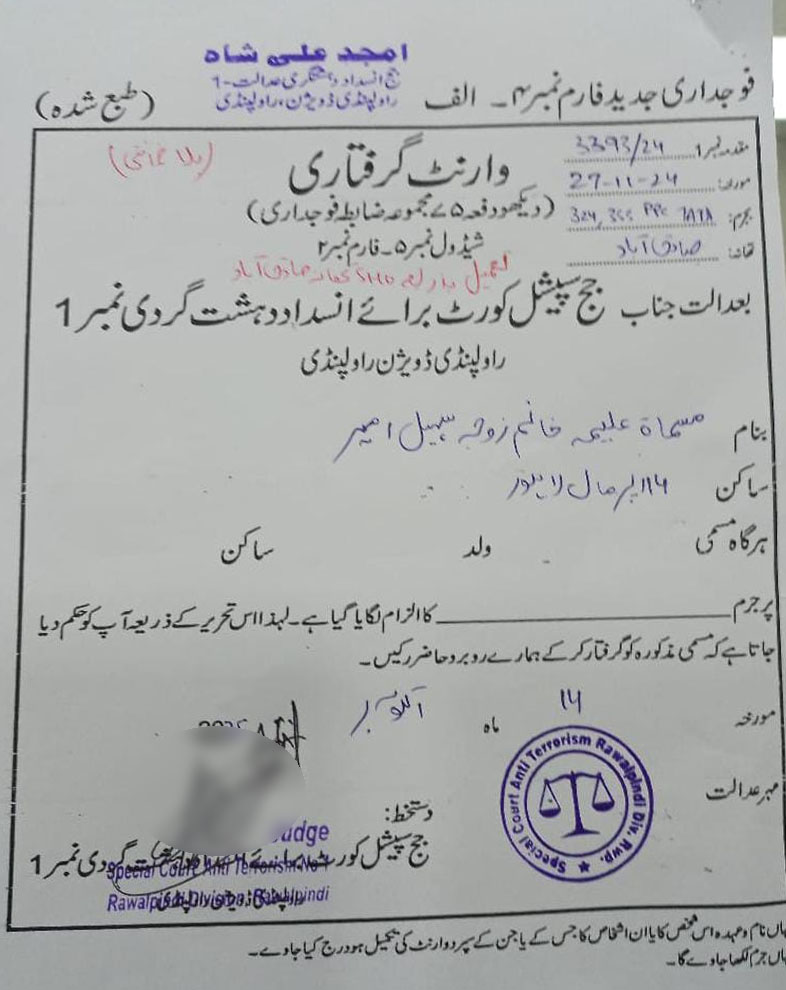 امجد علی شاہ
جج انسداد دہشتگری عدالت-1
راولپنڈی ڈویژن، راولپنڈی
فوجداری جدید فارم نمبر ۴۔ الف
(طبع شدہ)
مقدمہ نمبر 3393/24
مورخہ: 27-11-24
بجرم: 324, 353 PPC 7ATA
تھانہ: صادق آباد
وارنٹ گرفتاری
(بلا ضمانتی)
(دیکھو دفعہ ۷۵ مجموعہ ضابطہ فوجداری)
شیڈول نمبر ۵۔ فارم نمبر ۲
تعمیل بذریعہ SHO تھانہ صادق آباد
بعدالت جناب جج سپیشل کورٹ برائے انسداد دہشت گردی نمبر 1
راولپنڈی ڈویژن راولپنڈی
بنام مسماۃ علیمہ خانم زوجہ سہیل امیر
ساکن مال لاہور
ہرگاہ مسمی ولد ساکن
پر جرم کا الزام لگایا گیا ہے۔ لہذا اس تحریر کے ذریعہ آپ کو حکم دیا
جاتا ہے کہ مسمی مذکورہ کو گرفتار کر کے ہمارے روبرو حاضر رکیں۔
مورخہ 14 ماہ اکتوبر 2025
مہر عدالت
Special Court Anti Terrorism Rawalpindi Div. Rwp.
دستخط:
Judge
جج سپیشل کورٹ برائے انسداد دہشت گردی نمبر 1
Special Court Anti Terrorism No 1
راولپنڈی ڈویژن راولپنڈی
Rawalpindi Division, Rawalpindi
یہاں نام و عہدہ اس شخص کا یا ان اشخاص کا جس کے یا جن کے سپرد وارنٹ کی تکمیل ہو درج کیا جاوے۔
یہاں جرم لکھا جاوے گا۔